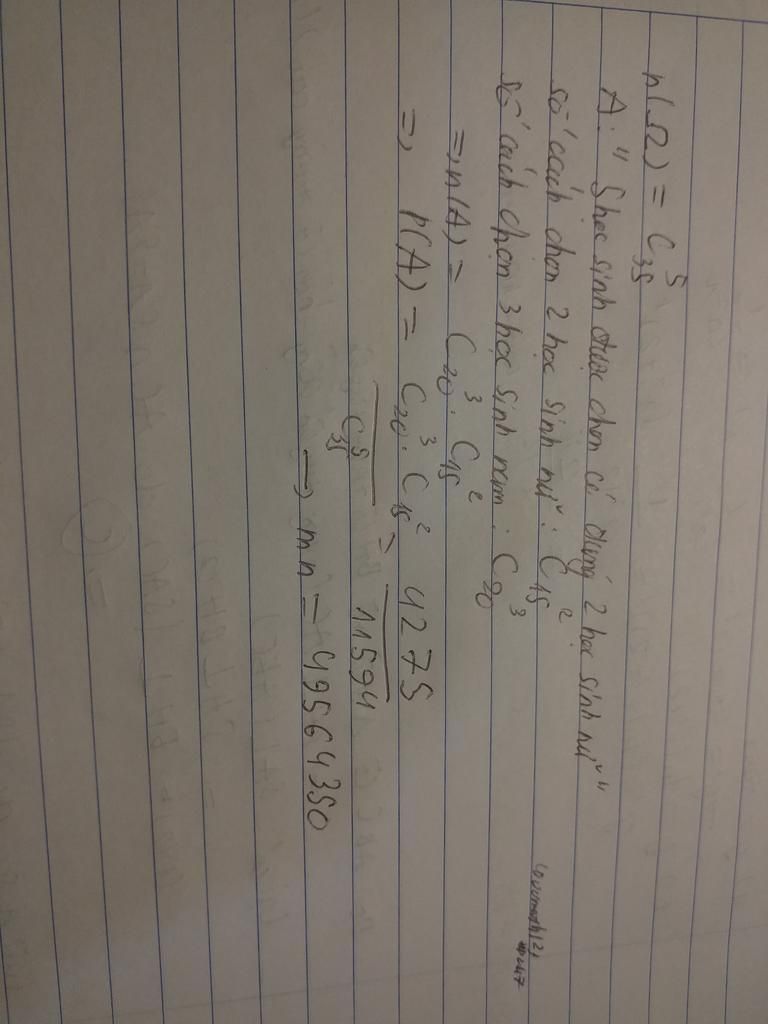 n(Ω) = C₃₅⁵
A: " 5 học sinh được chọn có đúng 2 học sinh nữ "
số cách chọn 2 học sinh nữ : C₁₅²
số cách chọn 3 học sinh nam : C₂₀³
=> n(A) = C₂₀³ . C₁₅²
=> P(A) = C₂₀³ . C₁₅² / C₃₅⁵ = 4275 / 11594
→ mn = 49564350